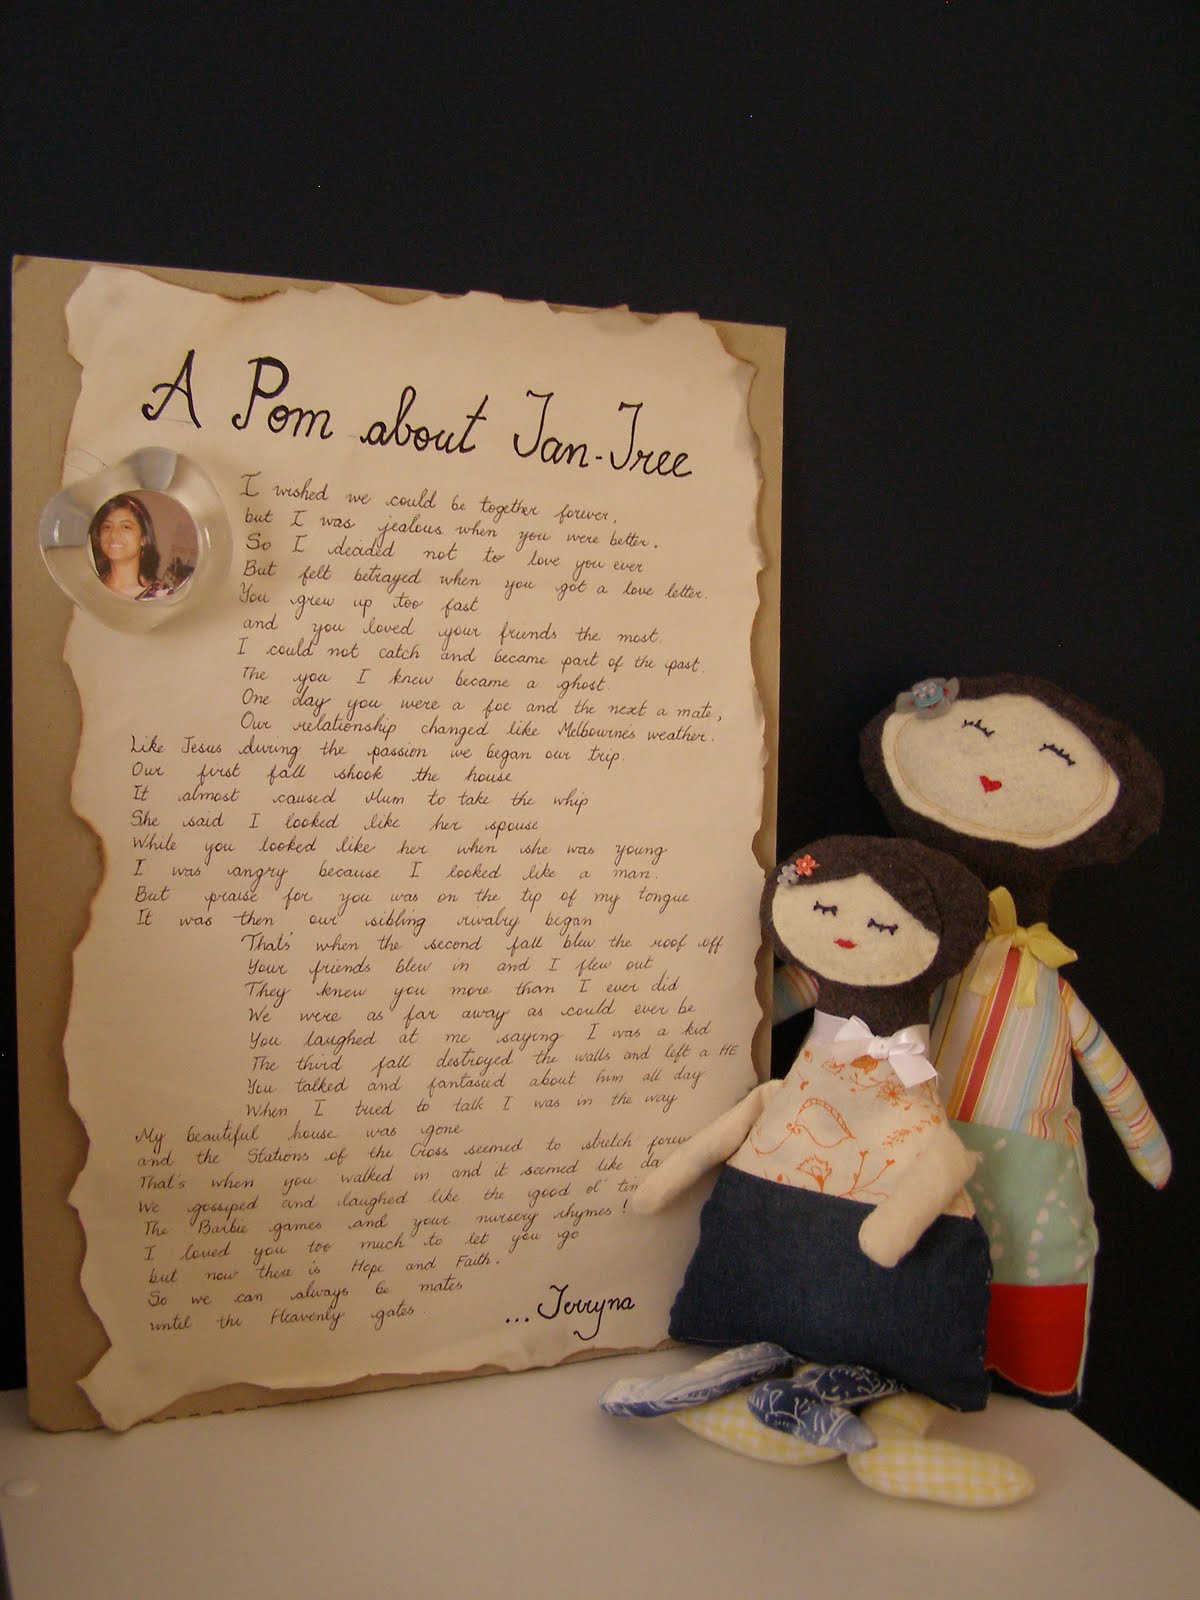 A Pom about Jan-Tree
I wished we could be together forever,
but I was jealous when you were better.
So I decided not to love you ever
But felt betrayed when you got a love letter.
You grew up too fast
and you loved your friends the most.
I could not catch and became part of the past.
The you I knew became a ghost.
One day you were a foe and the next a mate,
Our relationship changed like Melbournes weather.
Like Jesus during the passion we began our trip.
Our first fall shook the house
It almost caused Mum to take the whip
She said I looked like her spouse
While you looked like her when she was young
I was angry because I looked like a man.
But praise for you was on the tip of my tongue
It was then our sibling rivalry began
That's when the second fall blew the roof off
Your friends blew in and I flew out
They knew you more than I ever did
We were as far away as could ever be
You laughed at me saying I was a kid
The third fall destroyed the walls and left a HE
You talked and fantasied about him all day
When I tried to talk I was in the way
My beautiful house was gone
and the Stations of the Cross seemed to stretch
That's when you walked in and it seemed like
We gossiped and laughed like the good ol'
The Barbie games and your nursery rhymes!
I loved you too much to let you go
but now there is Hope and Faith.
So we can always be mates
until the Heavenly gates.
...Jerryna